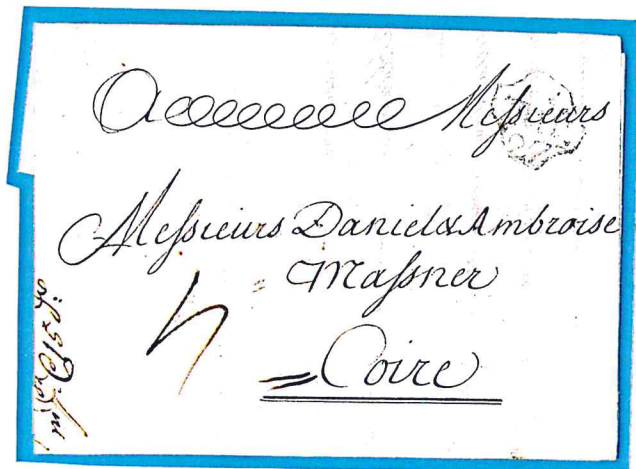 A Messieurs
Messieurs Daniel & Ambroise
Maſsner
Coire